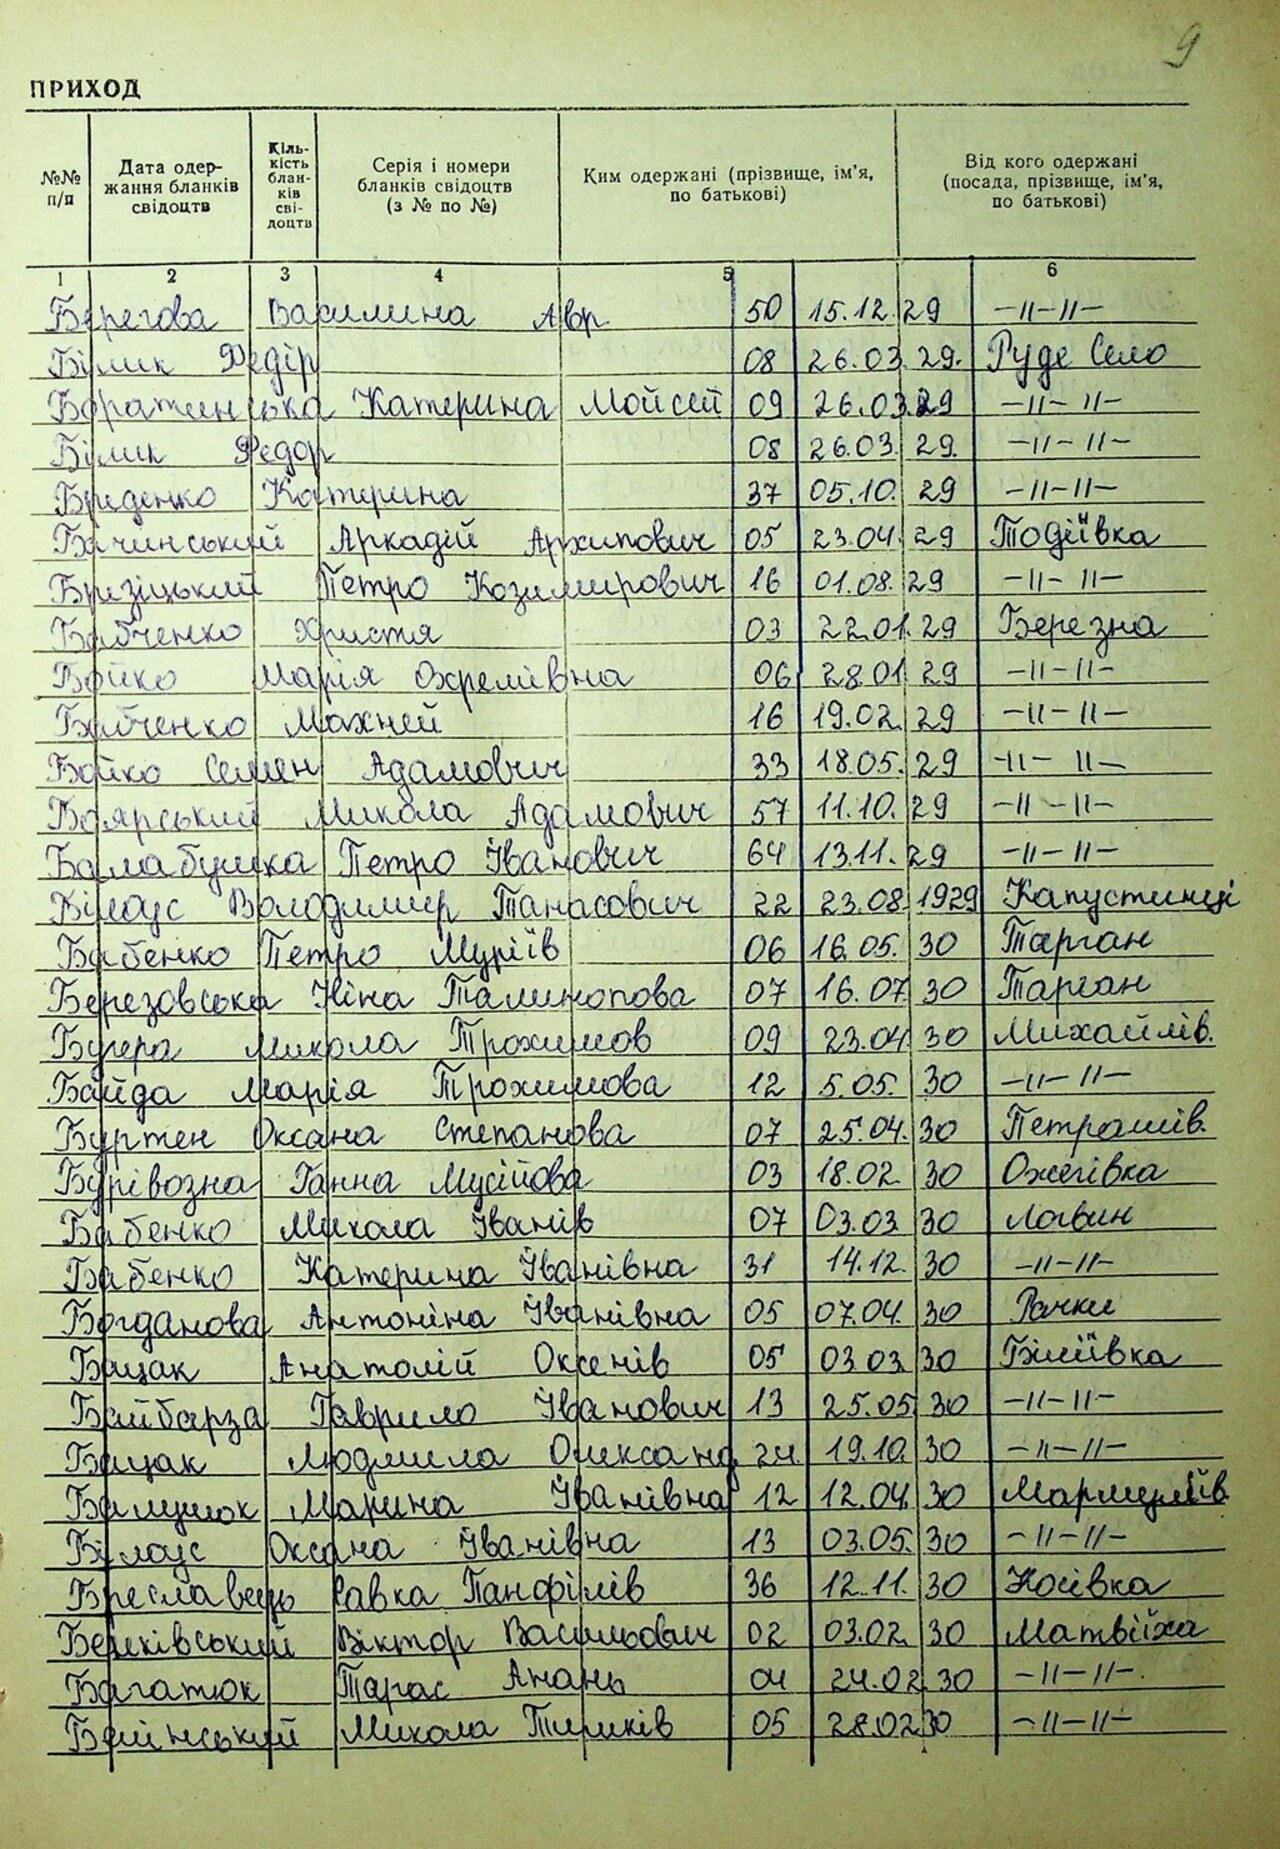 9
ПРИХОД
№№ п/п
Дата одер-
жання бланків
свідоцтв
Кіль-
кість
блан-
ків
сві-
доцтв
Серія і номери
бланків свідоцтв
(з № по №)
Ким одержані (прізвище, ім'я,
по батькові)
Від кого одержані
(посада, прізвище, ім'я,
по батькові)
1 2 3 4 5 6
Берегова Василина Авр. 50 15.12. 29 -11-11-
Білик Федір 08 26.03. 29. Руде Село
Баратинська Катерина Мойсей 09 26.03. 29 -11-11-
Білик Федор 08 26.03. 29. -11-11-
Катерина 37 05.10. 29 -11-11-
Бачинський Аркадій Архипович 05 23.04. 29 Тодіївка
Брезіцький Петро Козимирович 16 01.08. 29 -11-11-
Бабченко Христя 03 22.01. 29 Березна
Бойко Марія Охремівна 06 28.01. 29 -11-11-
Бабченко Махней 16 19.02. 29 -11-11-
Бойко Семен Адамович 33 18.05. 29 -11-11-
Боярський Микола Адамович 57 11.10. 29 -11-11-
Балабушка Петро Іванович 64 13.11. 29 -11-11-
Білоус Володимир Танасович 22 23.08. 1929 Капустинці
Бабенко Петро 06 16.05. 30 Тарган
Березовська 07 16.07. 30 Тарган
Бугера Микола Трохимов 09 23.04. 30 Михайлів.
Байда Марія Трохимова 12 5.05. 30 -11-11-
Буртен Оксана Степанова 07 25.04. 30 Петрашів.
Бурівозна Ганна Мусійова 03 18.02. 30 Ожегівка
Бабенко Микола Іванів 07 03.03. 30 Логвин
Бабенко Катерина Іванівна 31 14.12. 30 -11-11-
Богданова Антоніна Іванівна 05 07.04. 30 Рачки
Бацак Анатолій Оксенів 05 03.03. 30 Біліївка
Байбарза Гаврило Іванович 13 25.05. 30 -11-11-
Бацак Людмила Олександ. 24. 19.10. 30 -11-11-
Марина Іванівна 12 12.04. 30
Білоус Оксана Іванівна 13 03.05. 30 -11-11-
Бреславець Савка Панфілів 36 12.11. 30 Косівка
Віктор Васильович 02 03.02. 30 Матвіїха
Багатюк Тарас Анань 04 24.02. 30 -11-11-.
Микола 05 28.02 30 -11-11-